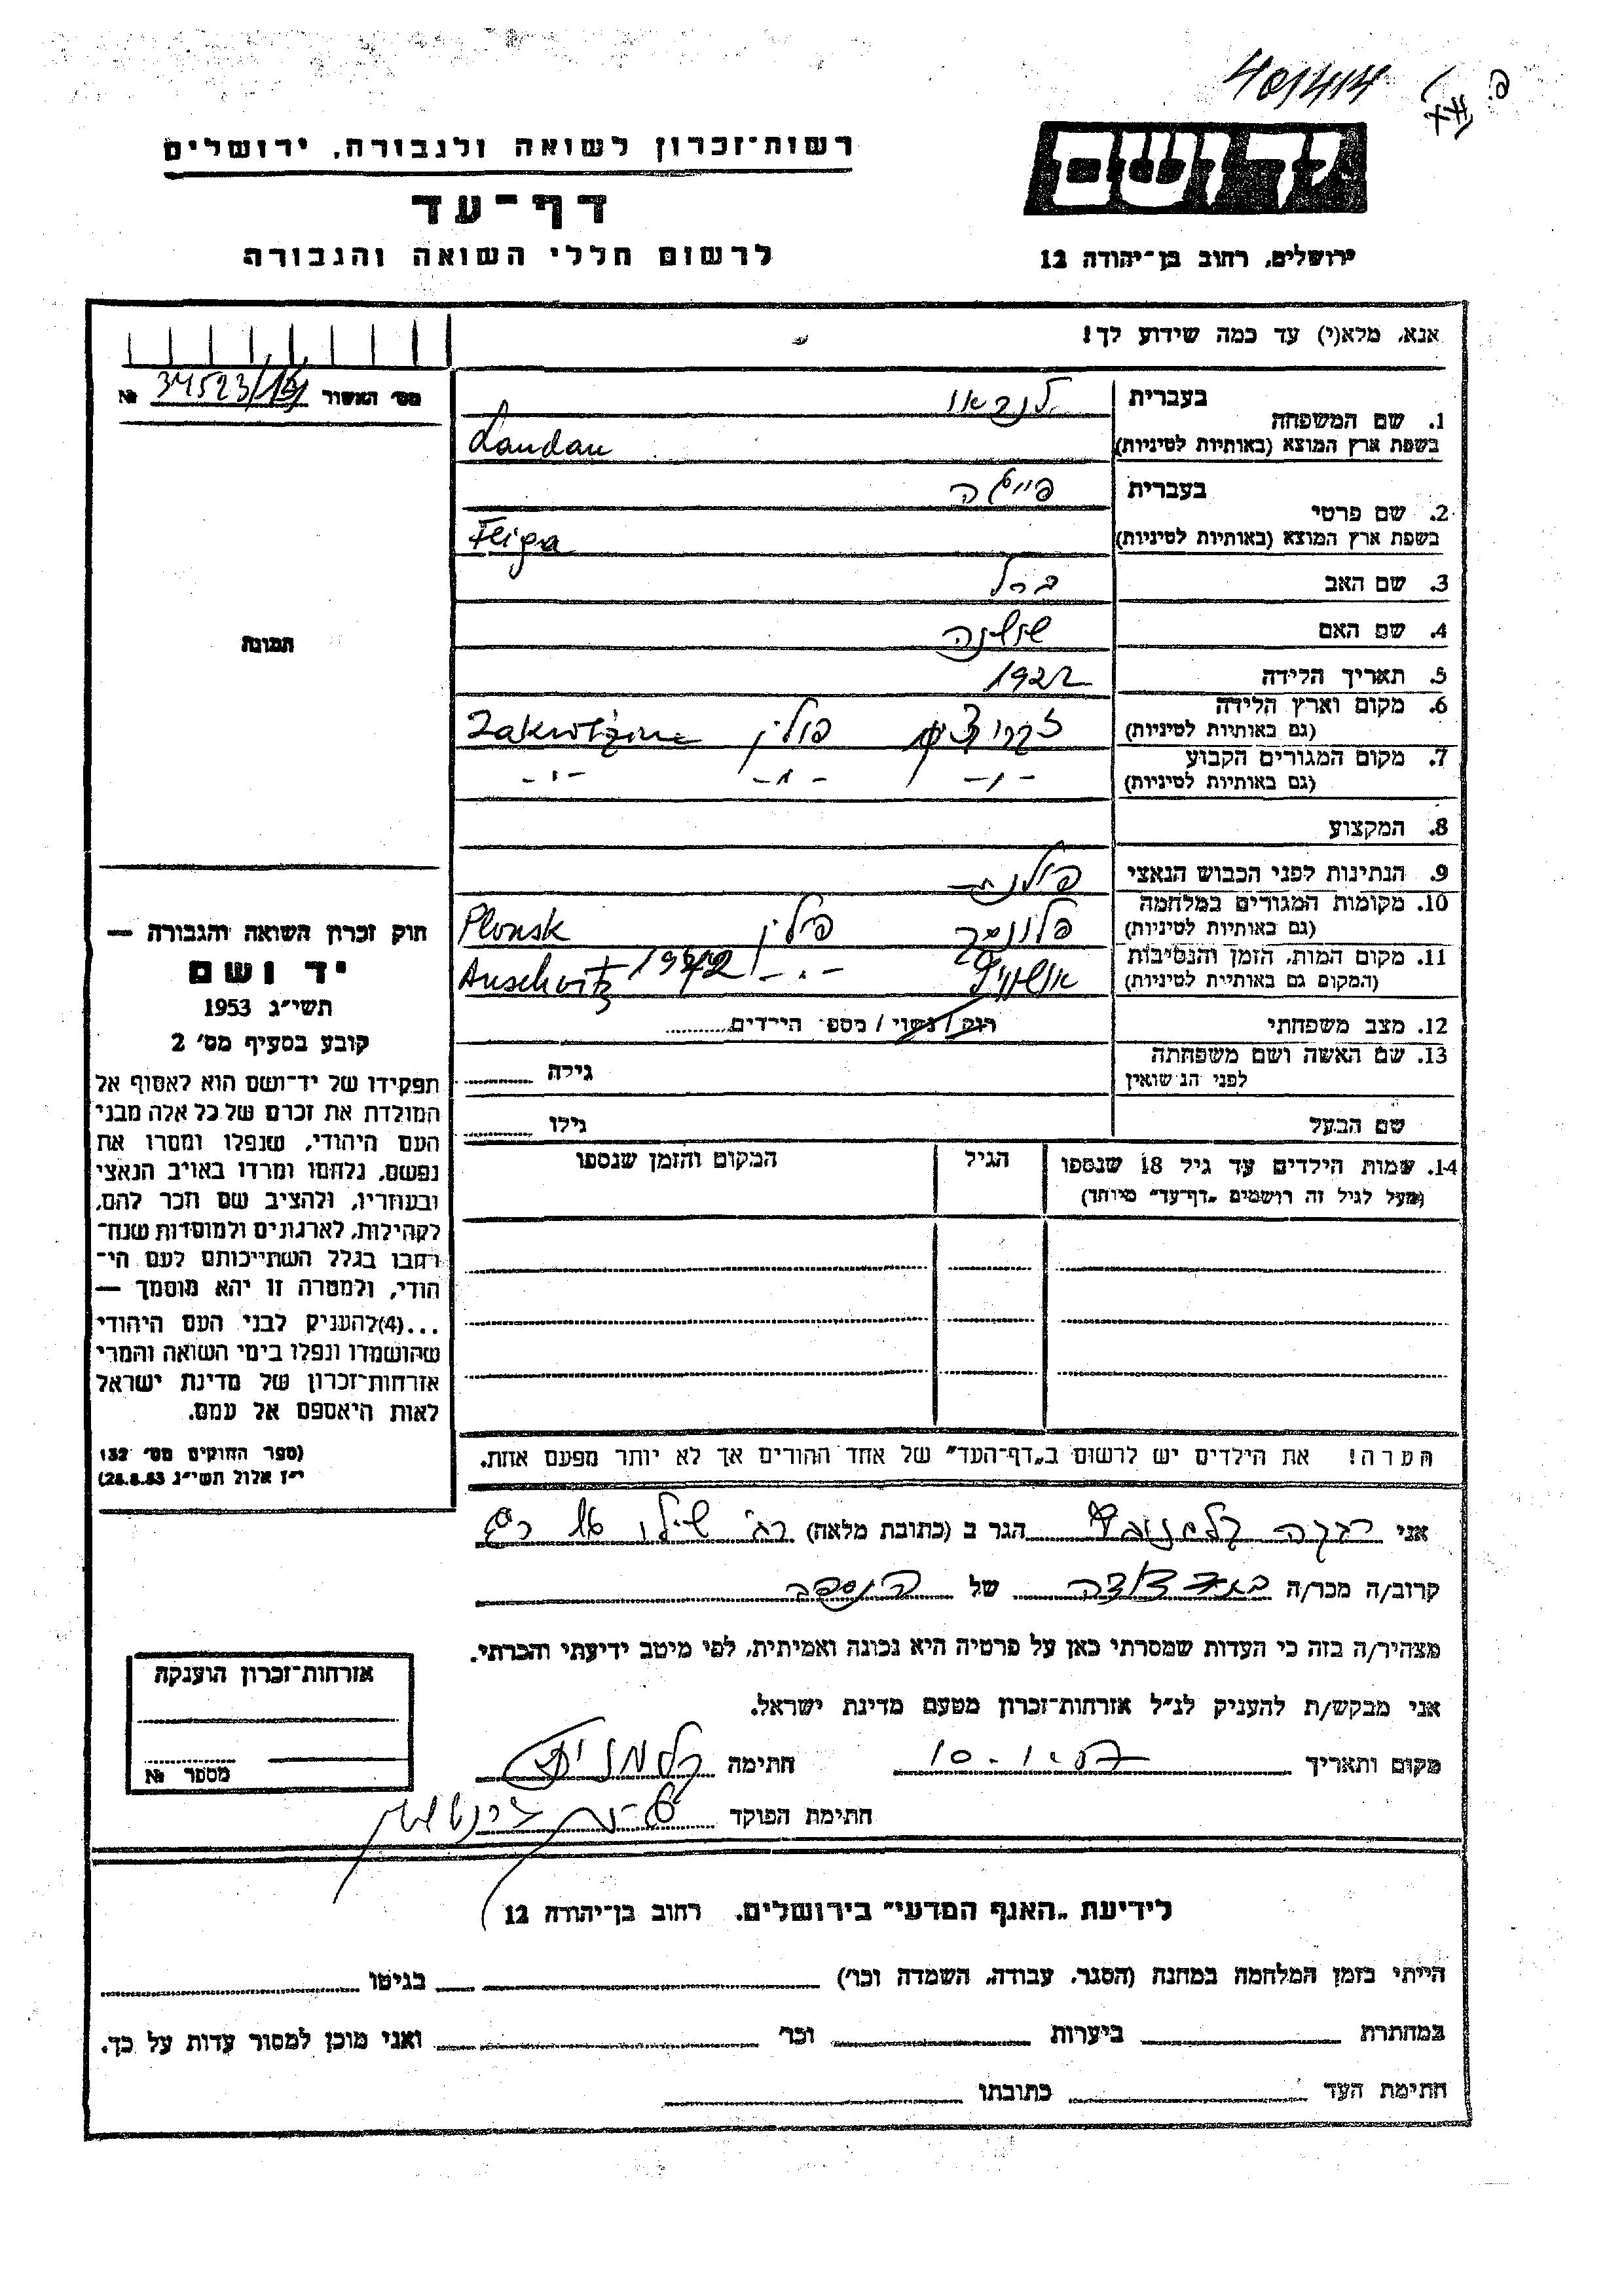 40/414
רשות־זכרון לשואה ולגבורה, ירושלים
דף־עד
לרשום חללי השואה והגבורה
יד ושם
ירושלים, רחוב בן־יהודה 12
אנא, מלא(י) עד כמה שידוע לך!
מס׳ האשור 34523/ №
1. שם המשפחה
בעברית לנדאו
בשפת ארץ המוצא (באותיות לטיניות) Landau
2. שם פרטי
בעברית פייגה
בשפת ארץ המוצא (באותיות לטיניות) Feiga
3. שם האב ברל
4. שם האם שושנה
5. תאריך הלידה 1922
6. מקום וארץ הלידה
(גם באותיות לטיניות) פולין
7. מקום המגורים הקבוע
(גם באותיות לטיניות) -"- -"- -"-
8. המקצוע
9. הנתינות לפני הכבוש הנאצי פולנית
10. מקומות המגורים במלחמה
(גם באותיות לטיניות) פלונסק פולין Plonsk
11. מקום המות, הזמן והנסיבות
(המקום גם באותיות לטיניות) אושוויץ -"- 1942 Auschwitz
12. מצב משפחתי רוק / נשוי / מספר הילדים
13. שם האשה ושם משפחתה
לפני הנשואין גילה
שם הבעל גילו
14. שמות הילדים עד גיל 18 שנספו
(מעל לגיל זה רושמים „דף־עד” מיוחד)
הגיל
המקום והזמן שנספו
הערה! את הילדים יש לרשום ב„דף־העד” של אחד ההורים אך לא יותר מפעם אחת.
תמונה
חוק זכרון השואה והגבורה —
יד ושם
תשי״ג 1953
קובע בסעיף מס׳ 2
תפקידו של יד־ושם הוא לאסוף אל
המולדת את זכרם של כל אלה מבני
העם היהודי, שנפלו ומסרו את
נפשם, נלחמו ומרדו באויב הנאצי
ובעוזריו, ולהציב שם וזכר להם,
לקהילות, לארגונים ולמוסדות שנח־
רבו בגלל השתייכותם לעם הי־
הודי, ולמטרה זו יהא מוסמך —
...(4)להעניק לבני העם היהודי
שהושמדו ונפלו בימי השואה והמרי
אזרחות־זכרון של מדינת ישראל
לאות היאספם אל עמם.
(ספר החוקים מס׳ 132
י״ז אלול תשי״ג 28.8.53)
אני רבקה הגר ב (כתובת מלאה) רח׳ שילו
קרוב/ה מכר/ה בת דודה של הנספה
מצהיר/ה בזה כי העדות שמסרתי כאן על פרטיה היא נכונה ואמיתית, לפי מיטב ידיעתי והכרתי.
אני מבקש/ת להעניק לנ״ל אזרחות־זכרון מטעם מדינת ישראל.
מקום ותאריך חתימה
חתימת הפוקד
אזרחות־זכרון הוענקה
מספר №
לידיעת „האגף המדעי” בירושלים, רחוב בן־יהודה 12
הייתי בזמן המלחמה במחנה (הסגר, עבודה, השמדה וכו׳) בגיטו
במחתרת ביערות וכו׳ ואני מוכן למסור עדות על כך.
חתימת העד כתובתו